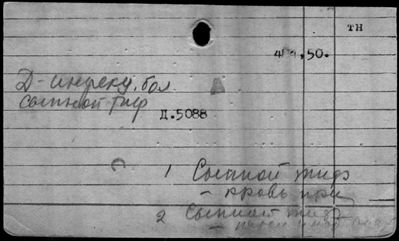 тн
50.
Д-инфекц. бол
Сыпной тиф
Д.5088
1 Сыпной тиф
- кровь при
2 Сыпной тиф